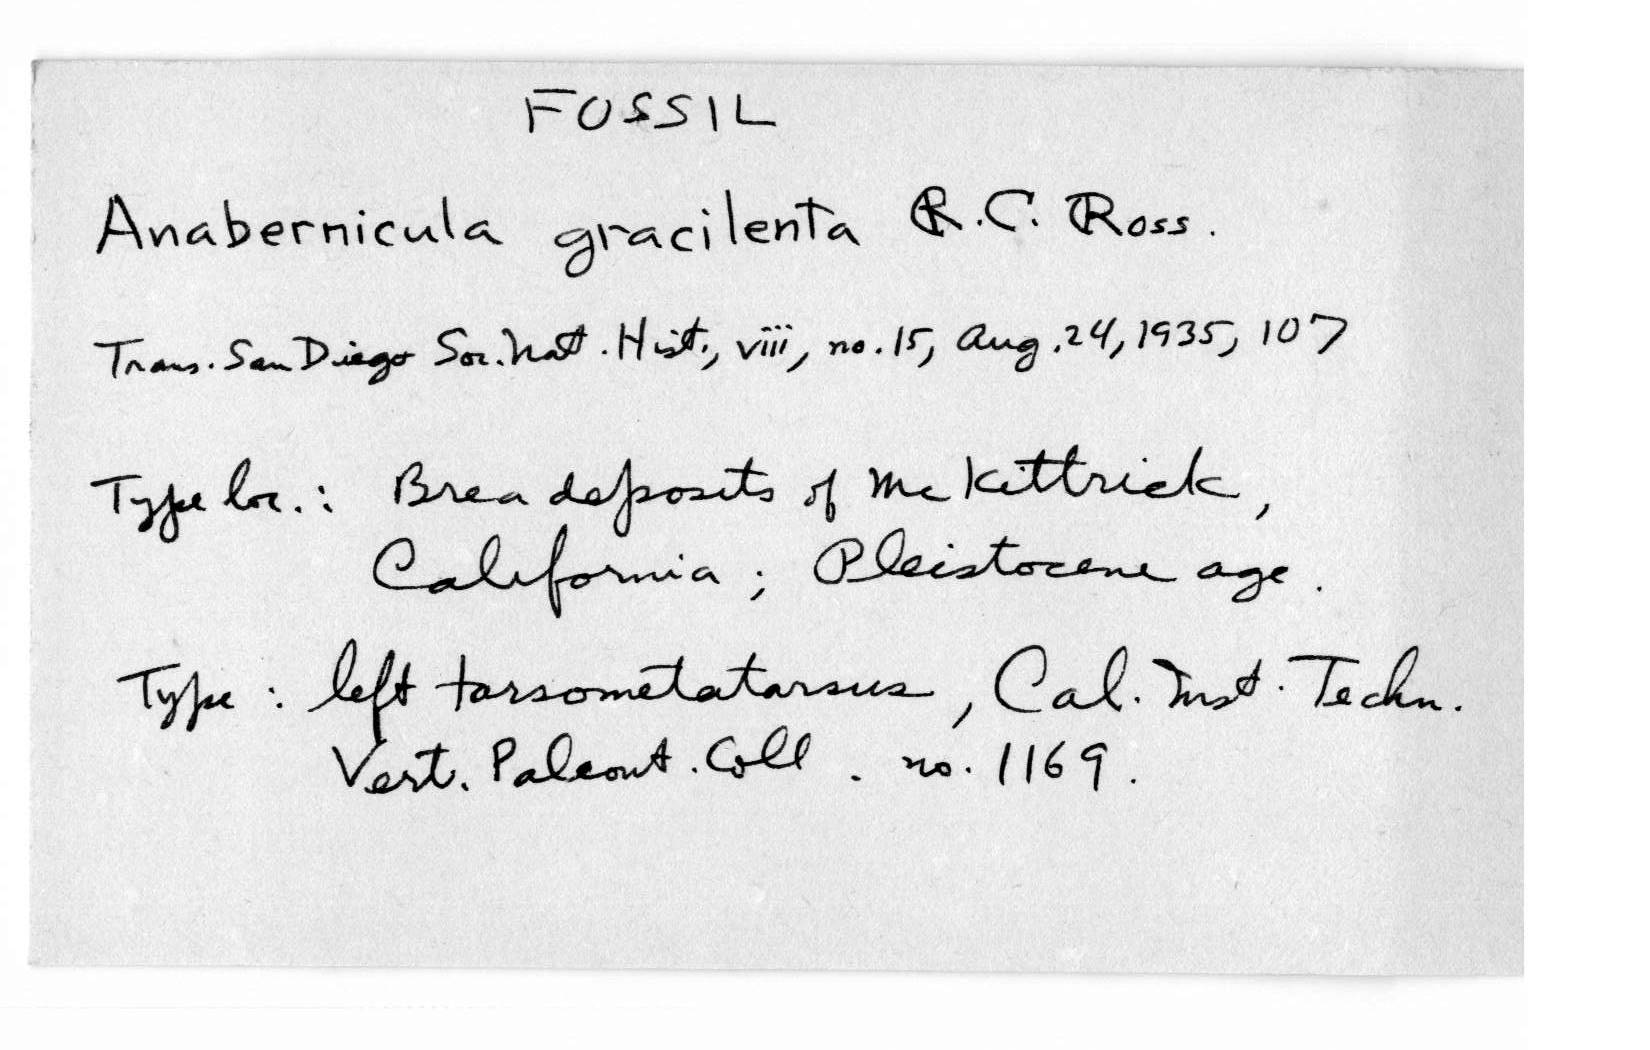 FOSSIL
Anabernicula gracilenta R.C. Ross.
Trans. San Diego Soc. Nat. Hist., viii, no. 15, Aug. 24, 1935, 107
Type loc.: Brea deposits of McKittrick,
California; Pleistocene age.
Type: left tarsometatarsus, Cal. Inst. Techn.
Vert. Paleont. Coll. no. 1169.